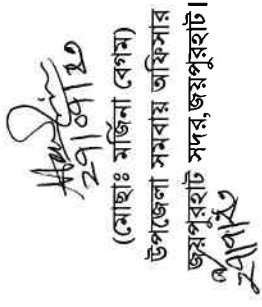 ২৭।০৭।২৩
(মোছাঃ মর্জিনা বেগম)
উপজেলা সমবায় অফিসার
জয়পুরহাট সদর, জয়পুরহাট।